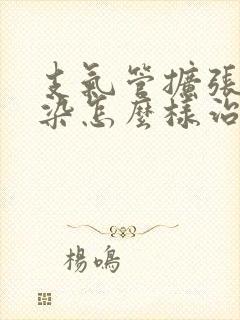 支氣管擴張
染怎麼樣治
楊鳴